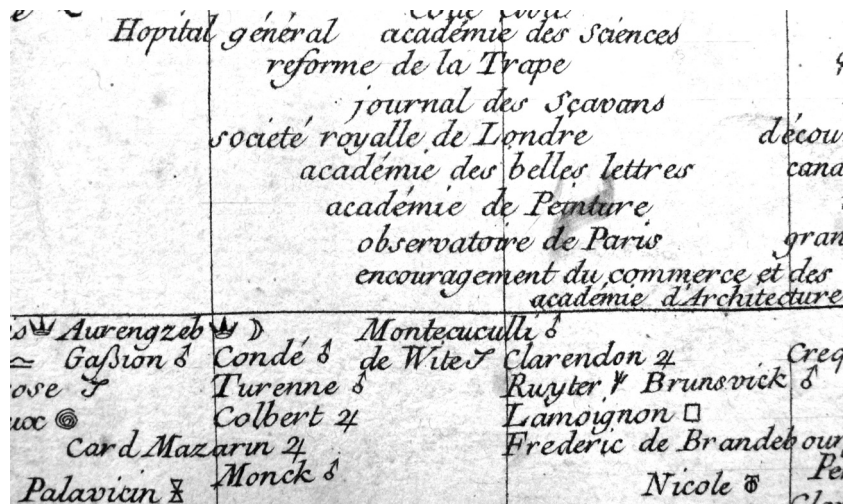 Hopital général académie des Sciences
reforme de la Trape
journal des Sçavans
societé royalle de Londre décou
académie des belles lettres cana
académie de Peinture
observatoire de Paris gran
encouragement du commerce et des
académie d'Architecture
Aurengzeb ☽ Montecuculli ♂
Gaßion ♂ Condé ♂ de Wite Clarendon ♃ Creq
ose Turenne ♂ Ruyter Brunsvick ♂
ux Colbert ♃ Lamoignon □
Card Mazarin ♃ Frederic de Brandebour
Monck ♂ Pe
Palavicin Nicole